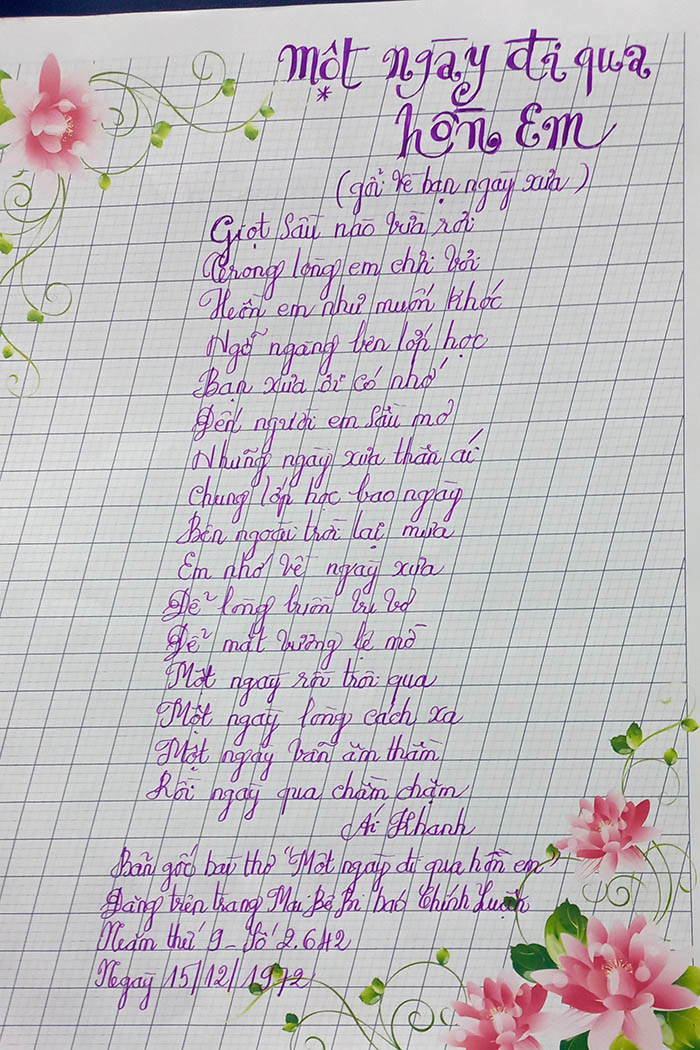 Một ngày đi qua
*
hồn Em
(gởi về bạn ngày xưa)
Giọt sầu nào vừa rơi
Trong lòng em chơi vơi
Hồn em như muốn khóc
Ngỡ ngàng bên lớp học
Bạn xưa ơi có nhớ
Đến người em sầu mơ
Những ngày xưa thân ái
Chung lớp học bao ngày
Bên ngoài trời lại mưa
Em nhớ về ngày xưa
Để lòng buồn vu vơ
Để mắt vương lệ mờ
Một ngày rồi trôi qua
Một ngày lòng cách xa
Một ngày vẫn âm thầm
Rồi ngày qua chầm chậm
Ái Khanh
Bản gốc bài thơ "Một ngày đi qua hồn em"
Đăng trên trang Mai Bê Bi báo Chính Luận
Năm thứ 9 - Số 2.642
Ngày 15/12/1972